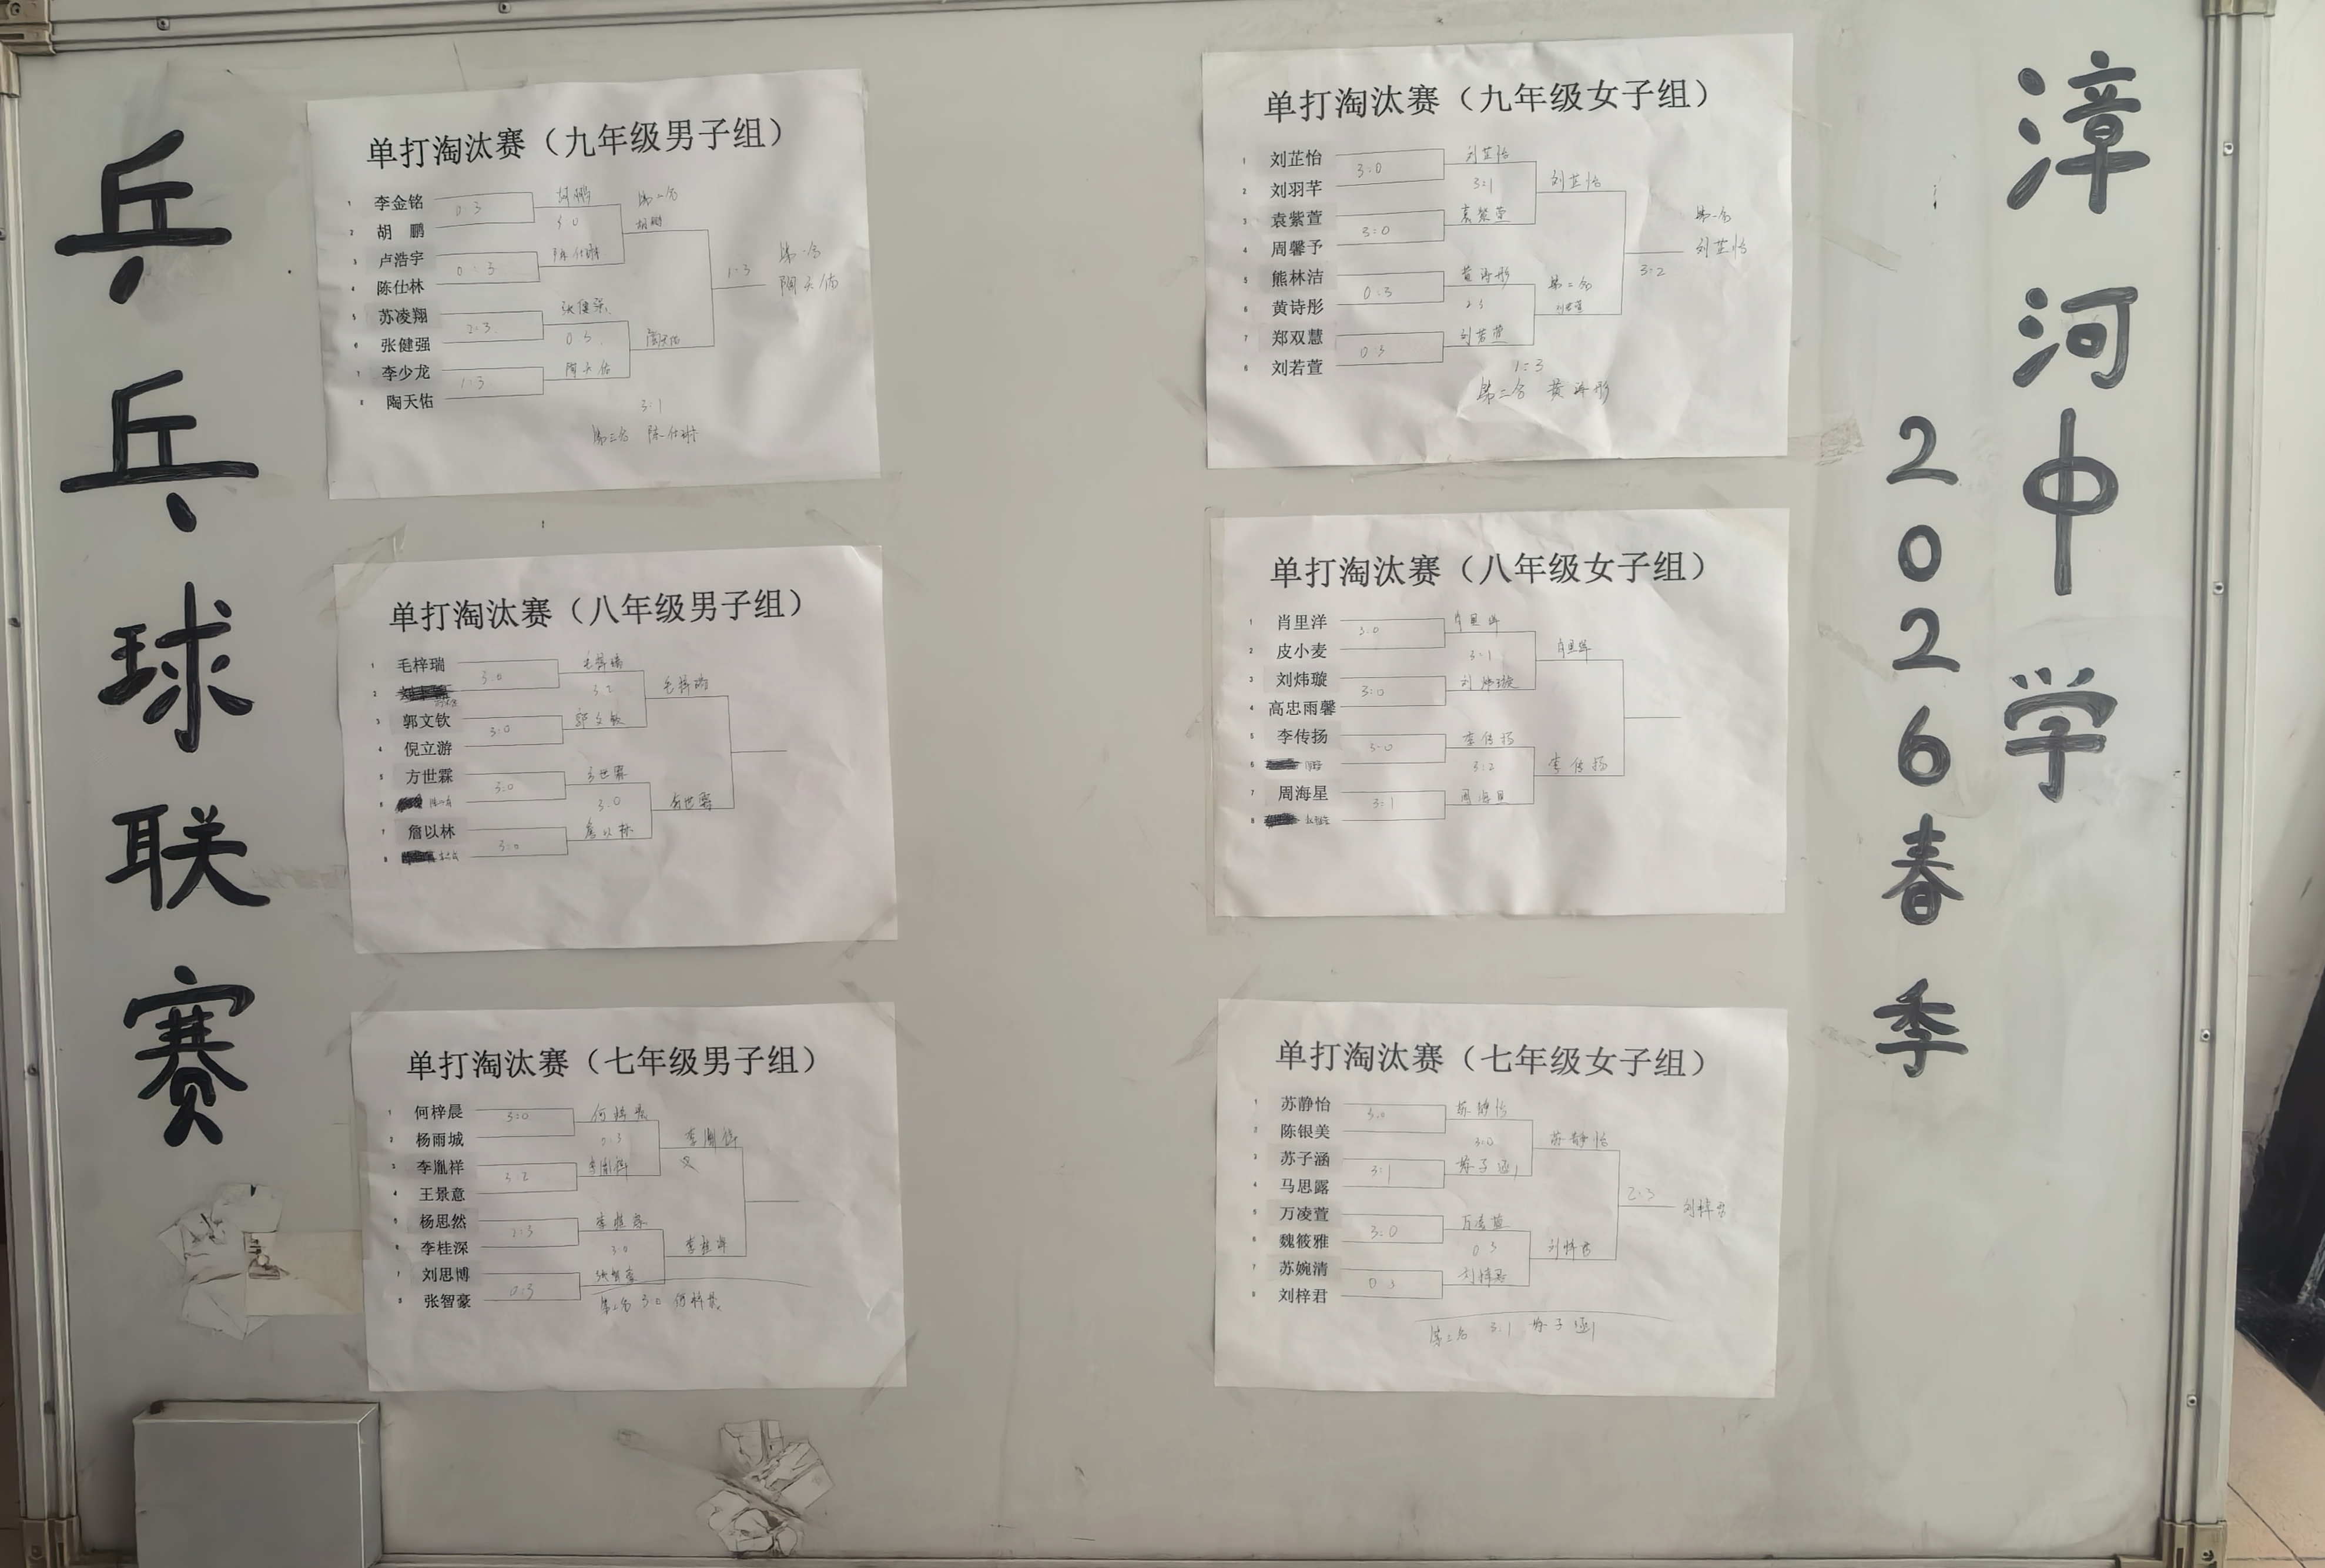 漳河中学
2026春季
乒乓球联赛
单打淘汰赛（九年级男子组）
1 李金铭
2 胡 鹏
3 卢浩宇
4 陈仕林
5 苏凌翔
6 张健强
7 李少龙
8 陶天佑
0:3
0:3
2:3
1:3
胡鹏
3:0
陈仕林
张健强
0:3
陶天佑
第二名
胡鹏
陶天佑
1:3
第一名
陶天佑
3:1
第三名 陈仕林
单打淘汰赛（九年级女子组）
1 刘芷怡
2 刘羽芊
3 袁紫萱
4 周馨予
5 熊林洁
6 黄诗彤
7 郑双慧
8 刘若萱
3:0
3:0
0:3
0:3
刘芷怡
3:1
袁紫萱
黄诗彤
2:3
刘若萱
刘芷怡
第二名
刘若萱
3:2
第一名
刘芷怡
1:3
第三名 黄诗彤
单打淘汰赛（八年级男子组）
1 毛梓瑞
2
3 郭文钦
4 倪立游
5 方世霖
6
7 詹以林
8
3:0
3:0
3:0
3:0
毛梓瑞
3:2
郭文钦
方世霖
3:0
詹以林
毛梓瑞
方世霖
单打淘汰赛（八年级女子组）
1 肖里洋
2 皮小麦
3 刘炜璇
4 高忠雨馨
5 李传扬
6
7 周海星
8
3:0
3:0
3:0
3:1
肖里洋
3:1
刘炜璇
李传扬
3:2
周海星
肖里洋
李传扬
单打淘汰赛（七年级男子组）
1 何梓晨
2 杨雨城
3 李胤祥
4 王景意
5 杨思然
6 李桂深
7 刘思博
8 张智豪
3:0
3:2
2:3
0:3
何梓晨
0:3
李胤祥
李桂深
3:0
张智豪
李胤祥
李桂深
3:0 何梓晨
单打淘汰赛（七年级女子组）
1 苏静怡
2 陈银美
3 苏子涵
4 马思露
5 万凌萱
6 魏筱雅
7 苏婉清
8 刘梓君
3:0
3:1
3:0
0:3
苏静怡
3:0
苏子涵
万凌萱
0:3
刘梓君
苏静怡
刘梓君
2:3
刘梓君
3:1 苏子涵